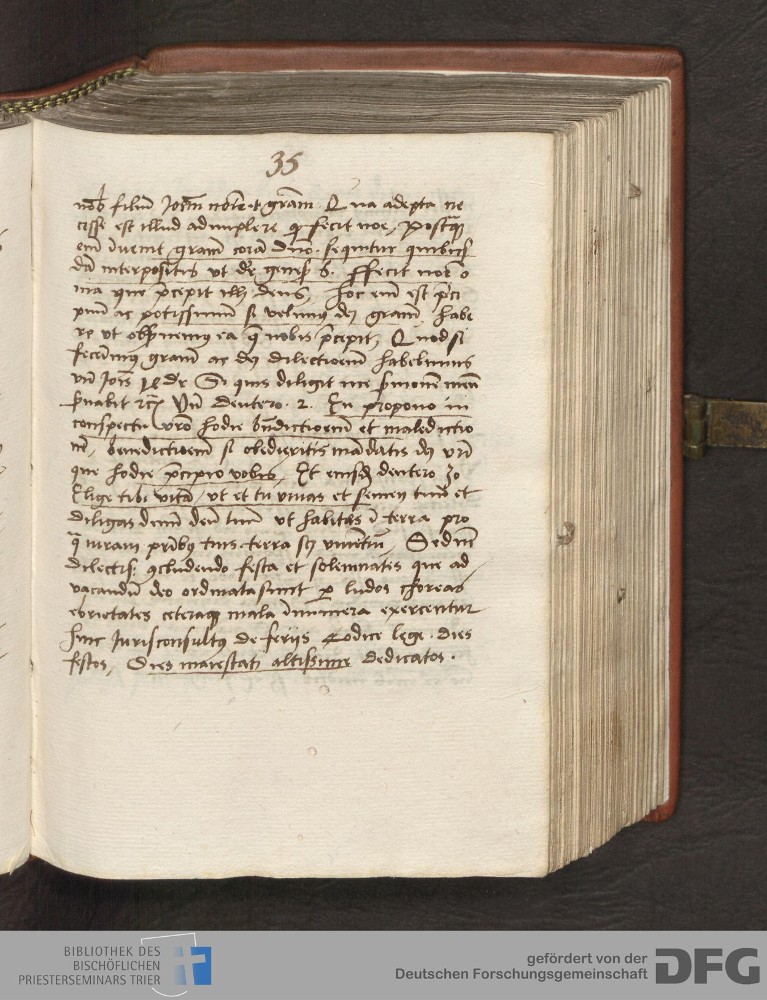 35
filiu Ioħem gram. Qua adepta ne
cesse est illud adimplere qd fecit noe, Postq
em īvenit gram corā dno. sequitur quibusd
dā interpositis ut dr genes 6. ffecit noe o
nia que pcepit illi deus, hoc em est pci
puū ac potissimum si velimus dei gram habe
re ut obseruemus ea q nobis pcepit, Quod si
fecerimus gram ac dei dilectionem habebimus
vn Iohis dr Si quis diligit me sermonem meū
seruabit rc Vn deutero. 2. En propono in
conspectu vro hodie bndictionem et maledictio
nē, benedictionem si obedieritis mādatis dei vri
que hodie pcipio vobis, Et eiusdē deutero 30
Elige tibi vitā, ut et tu viuas et semen tuū et
diligas dnm deū tuū ut habites ī terra pro
q iurauit patribus tuis terra
dilectiss: festa et solemnitates que ad
vacandū deo ordinata sunt per ludos choreas
ebrietates ceteraque mala innumera exercentur
hinc Iurisconsultus de ferijs Codice lege. dies
festos, Dies maiestati altissime dedicatos.
BIBLIOTHEK DES
BISCHÖFLICHEN
PRIESTERSEMINARS TRIER
gefördert von der
Deutschen Forschungsgemeinschaft
DFG